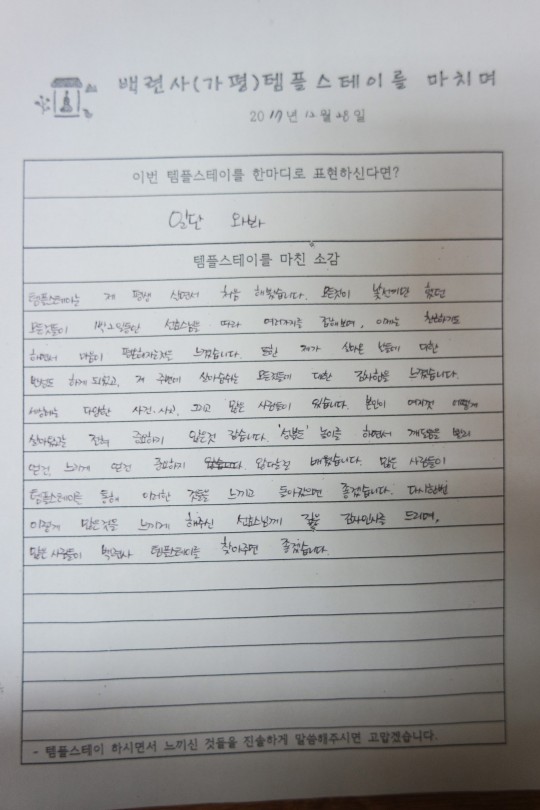 백련사(가평)템플스테이를 마치며
2017년 12월 28일
이번 템플스테이를 한마디로 표현하신다면?
일단 와봐
템플스테이를 마친 소감
템플스테이는 제 평생 살면서 처음 해봤습니다. 모든것이 낯설기만 했던
모든것들이 1박 2일동안 선효스님을 따라 여러가지를 접해보며, 이제는 친근하기도
하면서 마음이 편안해지는것을 느꼈습니다. 또한 제가 살아온 날들에 대한
반성도 하게 되었고, 제 주변에 살아숨쉬는 모든것들에 대한 감사함을 느꼈습니다.
세상에는 다양한 사건·사고, 그리고 많은 사람들이 있습니다. 본인이 여지껏 어떻게
살아왔는지 전혀 중요하지 않은것 같습니다. '성불도' 놀이를 하면서 깨달음을 빨리
얻건, 느리게 얻건 중요하지 않다는걸 배웠습니다. 많은 사람들이
템플스테이를 통해 이러한 것들을 느끼고 돌아갔으면 좋겠습니다. 다시한번
이렇게 많은것을 느끼게 해주신 선효스님께 깊은 감사인사를 드리며,
많은 사람들이 백련사 템플스테이를 찾아주면 좋겠습니다.
- 템플스테이 하시면서 느끼신 것들을 진솔하게 말씀해주시면 고맙겠습니다.